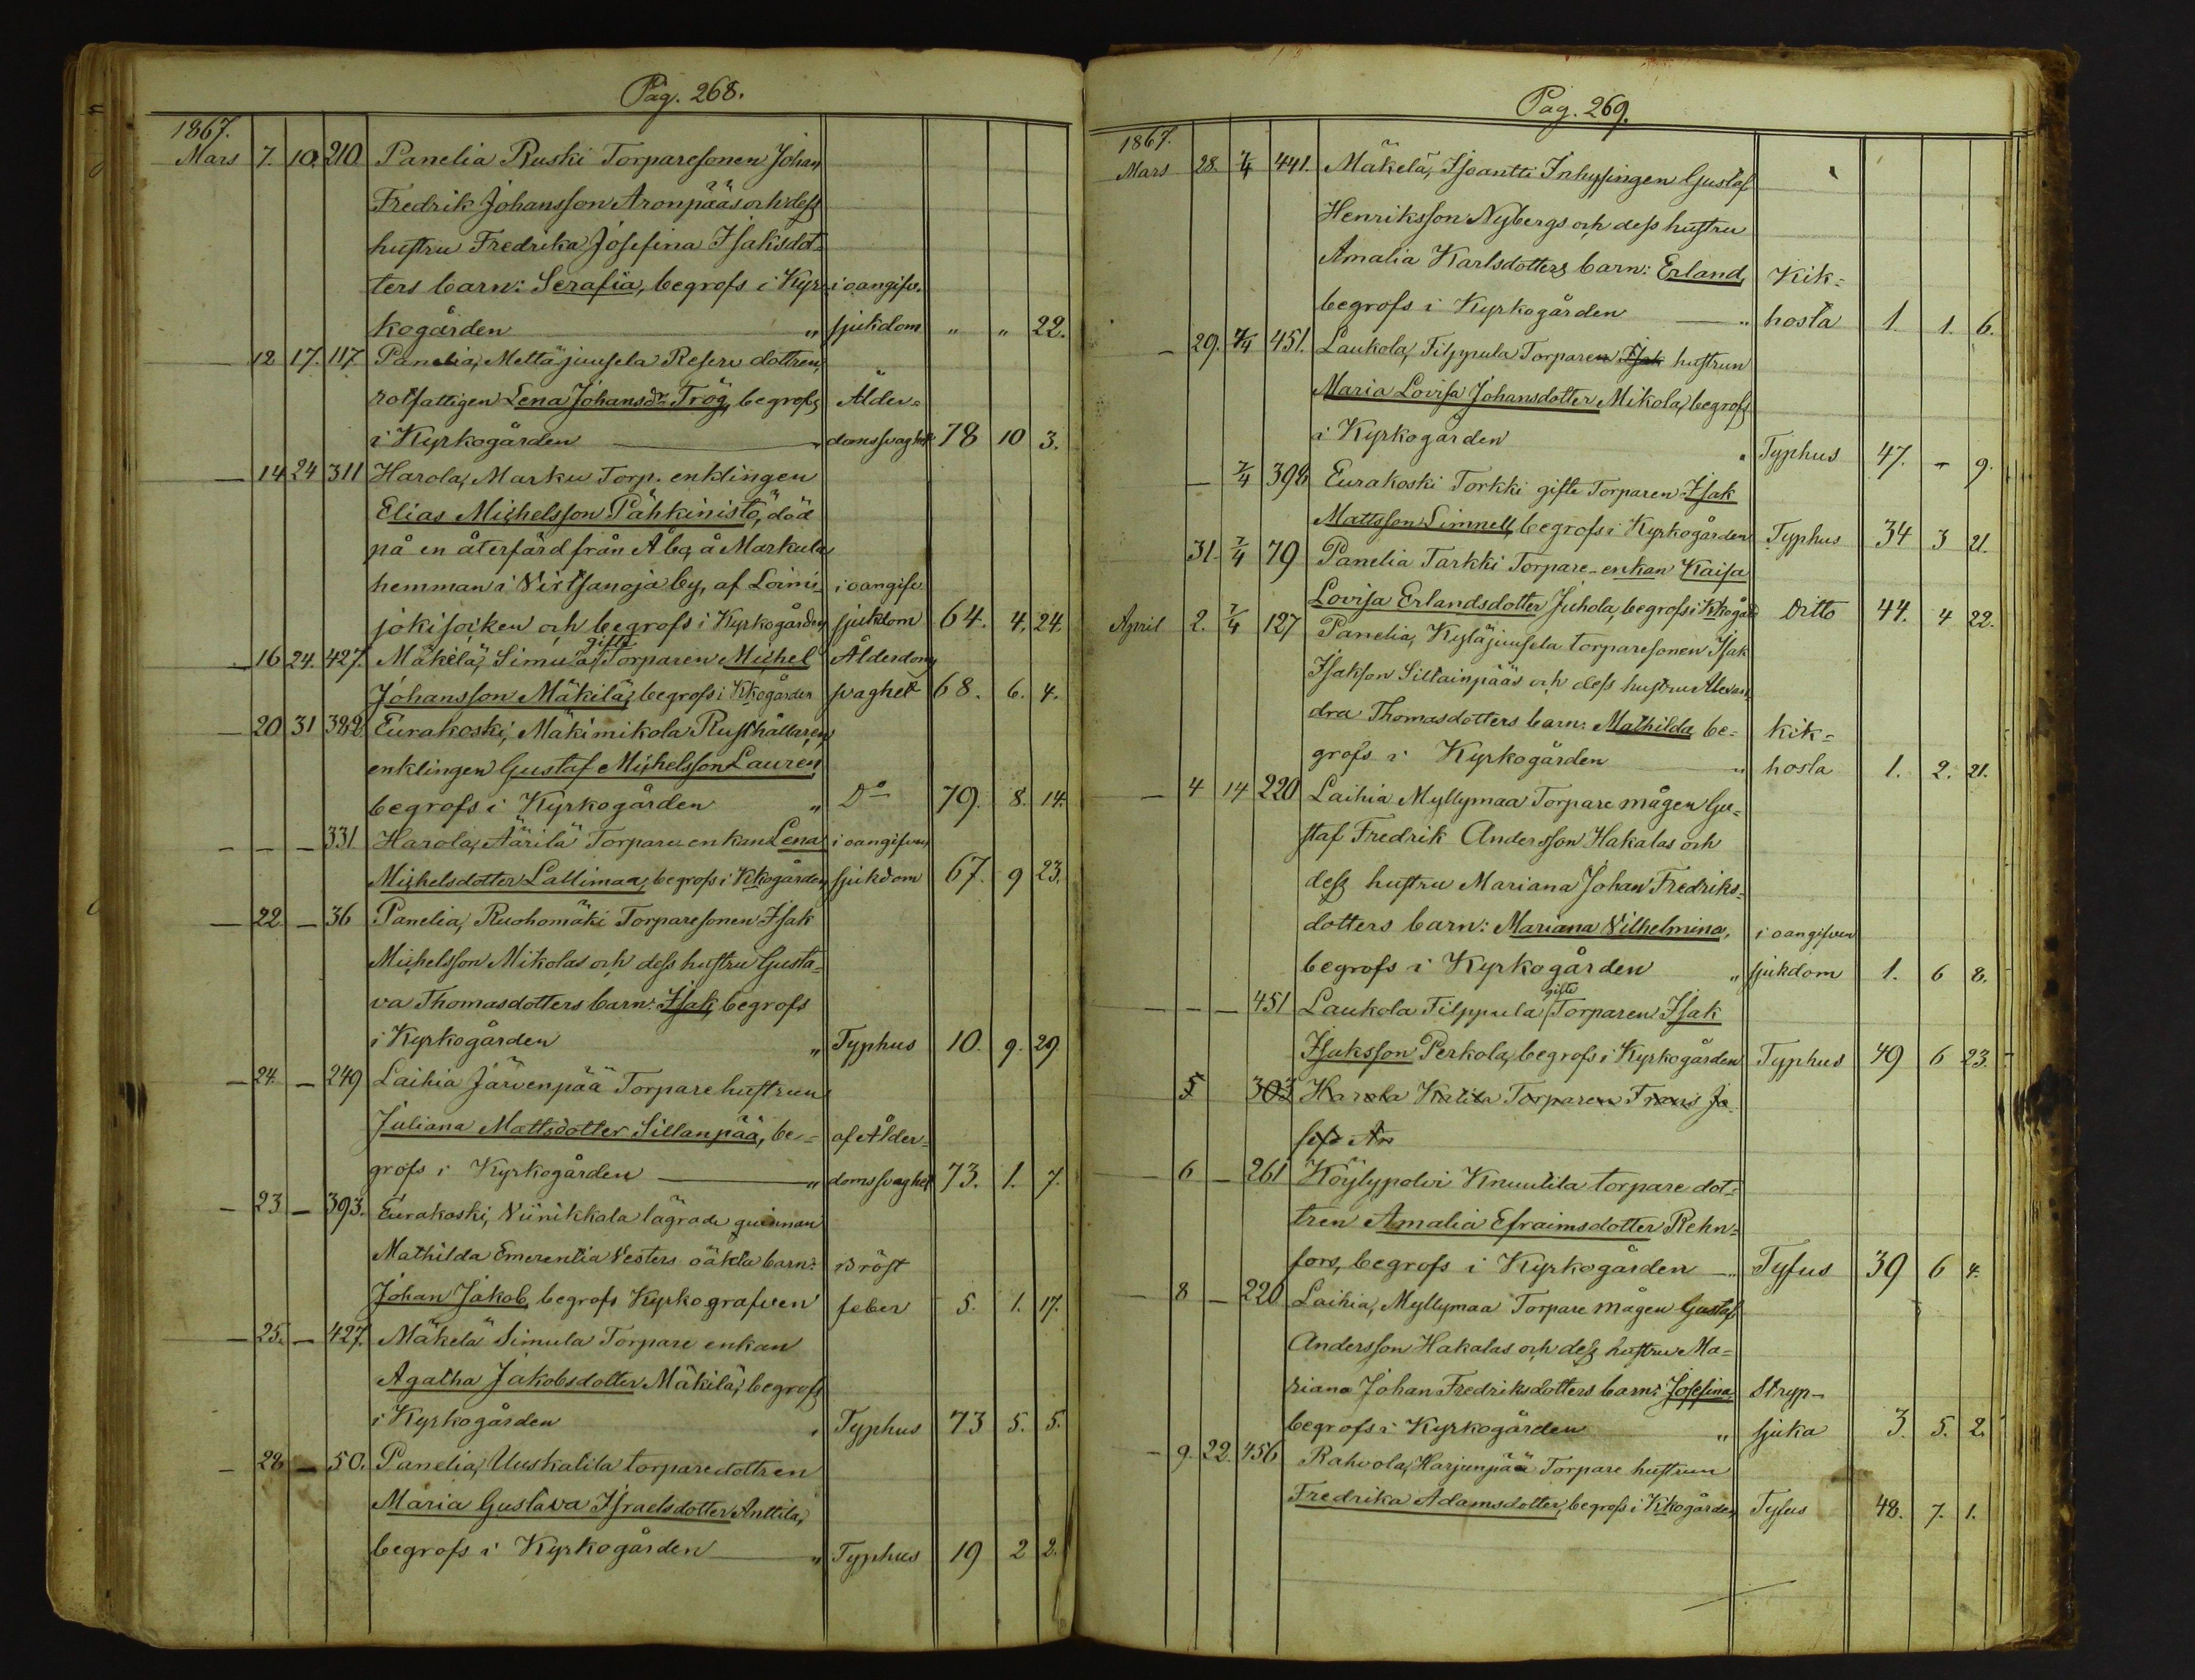 Pag. 268.
1867.
Mars 7. 10. 210 Panelia Ruski Torparesonen Johan
Fredrik Johansson Aronpääs och dess
hustru Fredrika Josefina Isaksdot-
ters barn: Serafia, begrofs i Kyr- i oangifv.
kogården " sjukdom " " 22.
— 12 17. 117 Panelia, Mettäjuusela Reserv dottren,
rotfattigen Lena Johansdr Trög, begrofs Ålder-
i Kyrkogården — " domssvaghet 78 10 3.
— 14 24 311 Harola, Marku Torp. enklingen
Elias Michelsson Pähkinistö, död
på en återfärd från Åbo, å Markula
hemman i Virtsanoja by, af Loimi- i oangifv
joki socken och begrofs i Kyrkogården sjukdom 64. 4. 24.
— 16 24. 427. Mäkelä, Simula gifte Torparen Michel Ålderdoms
Johansson Mäkilä, begrofs i Kkogården svaghet 68. 6. 4.
— 20 31 382. Eurakoski, Mäkimikola Rusthållaren,
enklingen Gustaf Michelsson Lauren,
begrofs i Kyrkogården " Do 79. 8. 14.
— — — 331 Harola, Äärilä Torpare enkan Lena i oangifven
Michelsdotter Lallimaa, begrofs i Kkogården sjukdom 67. 9 23.
— 22 — 36 Panelia, Ruohomäki Torparesonen Isak
Michelsson Mikolas och dess hustru Gusta-
va Thomasdotters barn: Isak, begrofs
i Kyrkogården " Typhus 10. 9. 29.
— 24. — 249 Laihia Järvenpää Torpare hustrun
Juliana Mattsdotter Sillanpää, be- af Ålder-
grofs i Kyrkogården — " domssvaghet 73. 1. 7.
— 23 — 393. Eurakoski, Viinikkala lägrade quinnan
Mathilda Emerentia Vesters oäkta barn: Bröst
Johan Jakob, begrofs Kyrkografven feber 5. 1. 17.
— 25. — 427. Mäkelä Simula Torpare enkan
Agatha Jakobsdotter Mäkilä, begrofs
i Kyrkogården " Typhus 73 5. 5.
— 28 — 50. Panelia, Uuskatila torparedottren
Maria Gustava Israelsdotter Anttila,
begrofs i Kyrkogården — " Typhus 19 2 2.
Pag. 269.
1867.
Mars 28. 7/4 441. Mäkelä, Isoantti Inhysingen Gustaf
Henriksson Nybergs och dess hustru
Amalia Karlsdotters barn: Erland, Kik-
begrofs i Kyrkogården — " hosta 1. 1. 6.
— 29. 7/4 451. Laukola, Filppula Torparen Isak hustrun
Maria Lovisa Johansdotter Mikola, begrofs
i Kyrkogården " Typhus 47. - 9.
— 7/4 398 Eurakoski Torkki gifte Torparen Isak
Mattsson Limnell, begrofs i Kyrkogården Typhus 34 3 21.
31. 7/4 79 Panelia Tarkki Torpare-enkan Kaisa
Lovisa Erlandsdotter Juhola, begrofs i Kkogård Ditto 44. 4 22.
April 2. 7/4 127 Panelia, Kyläjuusela torparesonen Isak
Isakson Siltainpääs och dess hustru Alexan-
dra Thomasdotters barn: Mathilda, be- kik-
grofs i Kyrkogården " hosta 1. 2. 21.
— 4 14 220 Laihia Myllymaa Torpare mågen Gu-
staf Fredrik Andersson Hakalas och
dess hustru Mariana Johan Fredriks-
dotters barn: Mariana Vilhelmina, i oangifven
begrofs i Kyrkogården " sjukdom 1. 6 8.
— — — 451 Laukola Filppula gifte Torparen Isak
Isaksson Perkola, begrofs i Kyrkogården Typhus 49 6 23.
5 303 Harola Katila Torparen Frans Jo
sefs An
— 6 — 261 Köylypolvi Knuutila torpare dot-
tren Amalia Efraimsdotter Rehn-
fors, begrofs i Kyrkogården — " Tyfus 39 6 4.
— 8 — 220 Laihia, Myllymaa Torpare mågen Gustaf
Andersson Hakalas och dess hustru Ma-
riana Johan Fredriksdotters barn: Josefina, Stryp-
begrofs i Kyrkogården " sjuka 3. 5. 2.
— 9. 22. 456 Rahvola, Harjunpää Torpare hustrun
Fredrika Adamsdotter, begrofs i Kkogården Tyfus 48. 7. 1.